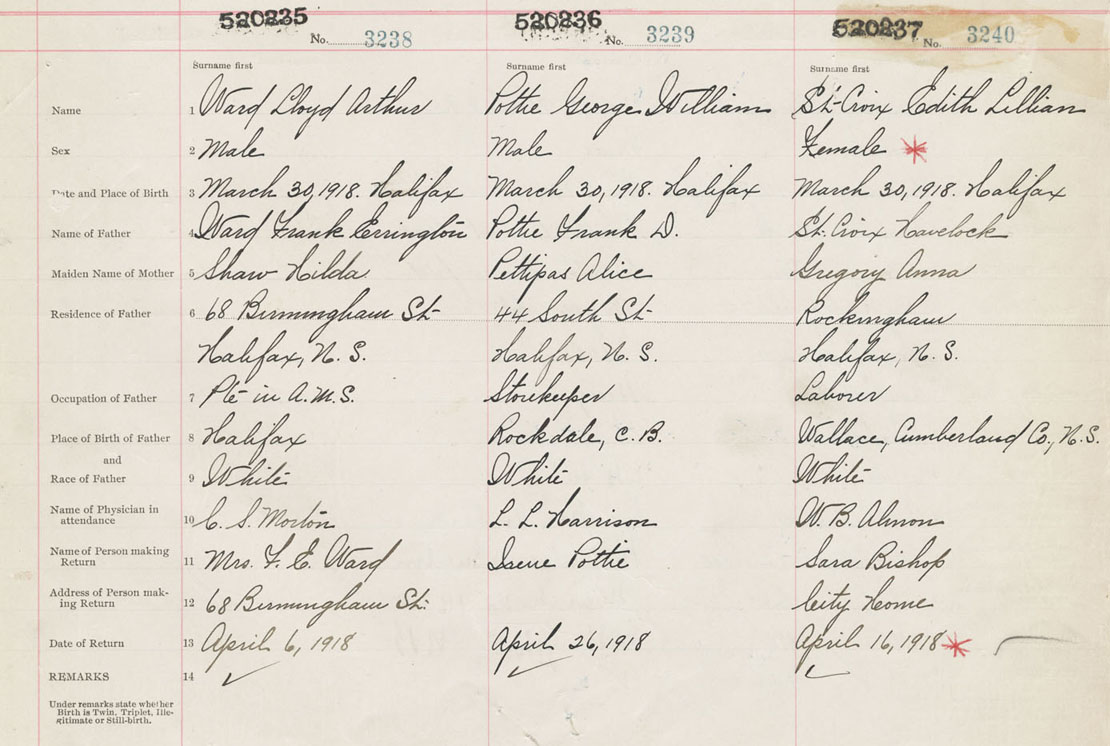 520235 520236 520237
No. 3238 No. 3239 No. 3240
Surname first Surname first Surname first
Name 1 Ward Lloyd Arthur Pottie George William St. Croix Edith Lillian
Sex 2 Male Male Female *
Date and Place of Birth 3 March 30, 1918. Halifax March 30, 1918. Halifax March 30, 1918. Halifax
Name of Father 4 Ward Frank Errington Pottie Frank D. St. Croix Havelock
Maiden Name of Mother 5 Shaw Hilda Pettipas Alice Gregory Anna
Residence of Father 6 68 Birmingham St. 44 South St. Rockingham
Halifax, N. S. Halifax, N. S. Halifax, N. S.
Occupation of Father 7 Pte in A.M.S. Storekeeper Laborer
Place of Birth of Father 8 Halifax Rockdale, C. B. Wallace, Cumberland Co., N.S.
and
Race of Father 9 White White White
Name of Physician in
attendance 10 C. S. Morton L. L. Harrison W. B. Almon
Name of Person making
Return 11 Mrs. F. E. Ward Irene Pottie Sara Bishop
Address of Person mak-
ing Return 12 68 Birmingham St. City Home
Date of Return 13 April 6, 1918 April 26, 1918 April 16, 1918 *
REMARKS 14 ✓ ✓ ✓
Under remarks state whether
Birth is Twin, Triplet, Ille-
gitimate or Still-birth.